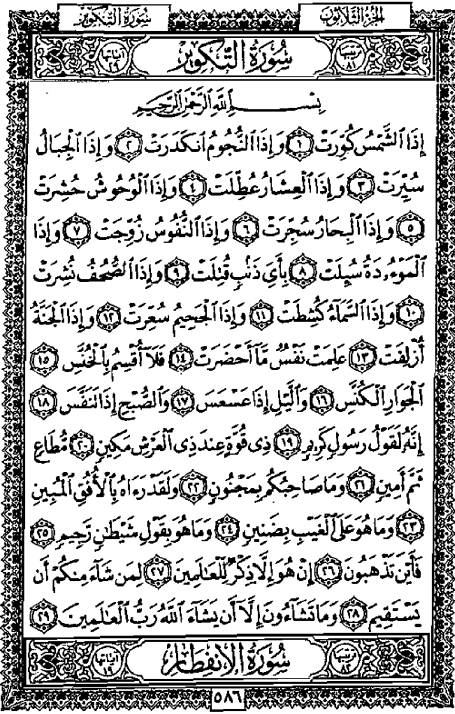 سُورَةُ التَّكْوِيرِ الجُزْءُ الثَّلَاثُونَ
آيَاتُهَا ٢٩ سُورَةُ التَّكْوِيرِ تَرْتِيبُهَا ٨١
بِسْمِ ٱللَّهِ ٱلرَّحْمَٰنِ ٱلرَّحِيمِ
إِذَا ٱلشَّمْسُ كُوِّرَتْ ١ وَإِذَا ٱلنُّجُومُ ٱنكَدَرَتْ ٢ وَإِذَا ٱلْجِبَالُ
سُيِّرَتْ ٣ وَإِذَا ٱلْعِشَارُ عُطِّلَتْ ٤ وَإِذَا ٱلْوُحُوشُ حُشِرَتْ
٥ وَإِذَا ٱلْبِحَارُ سُجِّرَتْ ٦ وَإِذَا ٱلنُّفُوسُ زُوِّجَتْ ٧ وَإِذَا
ٱلْمَوْءُۥدَةُ سُئِلَتْ ٨ بِأَيِّ ذَنۢبٍ قُتِلَتْ ٩ وَإِذَا ٱلصُّحُفُ نُشِرَتْ
١٠ وَإِذَا ٱلسَّمَآءُ كُشِطَتْ ١١ وَإِذَا ٱلْجَحِيمُ سُعِّرَتْ ١٢ وَإِذَا ٱلْجَنَّةُ
أُزْلِفَتْ ١٣ عَلِمَتْ نَفْسٌ مَّآ أَحْضَرَتْ ١٤ فَلَآ أُقْسِمُ بِٱلْخُنَّسِ ١٥
ٱلْجَوَارِ ٱلْكُنَّسِ ١٦ وَٱلَّيْلِ إِذَا عَسْعَسَ ١٧ وَٱلصُّبْحِ إِذَا تَنَفَّسَ ١٨
إِنَّهُۥ لَقَوْلُ رَسُولٍ كَرِيمٍ ١٩ ذِى قُوَّةٍ عِندَ ذِى ٱلْعَرْشِ مَكِينٍ ٢٠ مُّطَاعٍ
ثَمَّ أَمِينٍ ٢١ وَمَا صَاحِبُكُم بِمَجْنُونٍ ٢٢ وَلَقَدْ رَءَاهُ بِٱلْأُفُقِ ٱلْمُبِينِ
٢٣ وَمَا هُوَ عَلَى ٱلْغَيْبِ بِضَنِينٍ ٢٤ وَمَا هُوَ بِقَوْلِ شَيْطَٰنٍ رَّجِيمٍ ٢٥
فَأَيْنَ تَذْهَبُونَ ٢٦ إِنْ هُوَ إِلَّا ذِكْرٌ لِّلْعَٰلَمِينَ ٢٧ لِمَن شَآءَ مِنكُمْ أَن
يَسْتَقِيمَ ٢٨ وَمَا تَشَآءُونَ إِلَّآ أَن يَشَآءَ ٱللَّهُ رَبُّ ٱلْعَٰلَمِينَ ٢٩
آيَاتُهَا ١٩ سُورَةُ الِانفِطَارِ تَرْتِيبُهَا ٨٢
٥٨٦